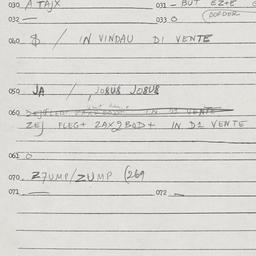 030. A TAJX 031 - BUT EZ+E
032 — 033. O DORDER
040. $ / IN VINDAU D! VENTE
050. JA / JOBUS JOBUS
060. IN D! VENTE
ZEJ FLEG+ ZAX9BOD+ IN D1 VENTE
061 O
070. Z7UMP/ZUMP (269
071. — 072 —